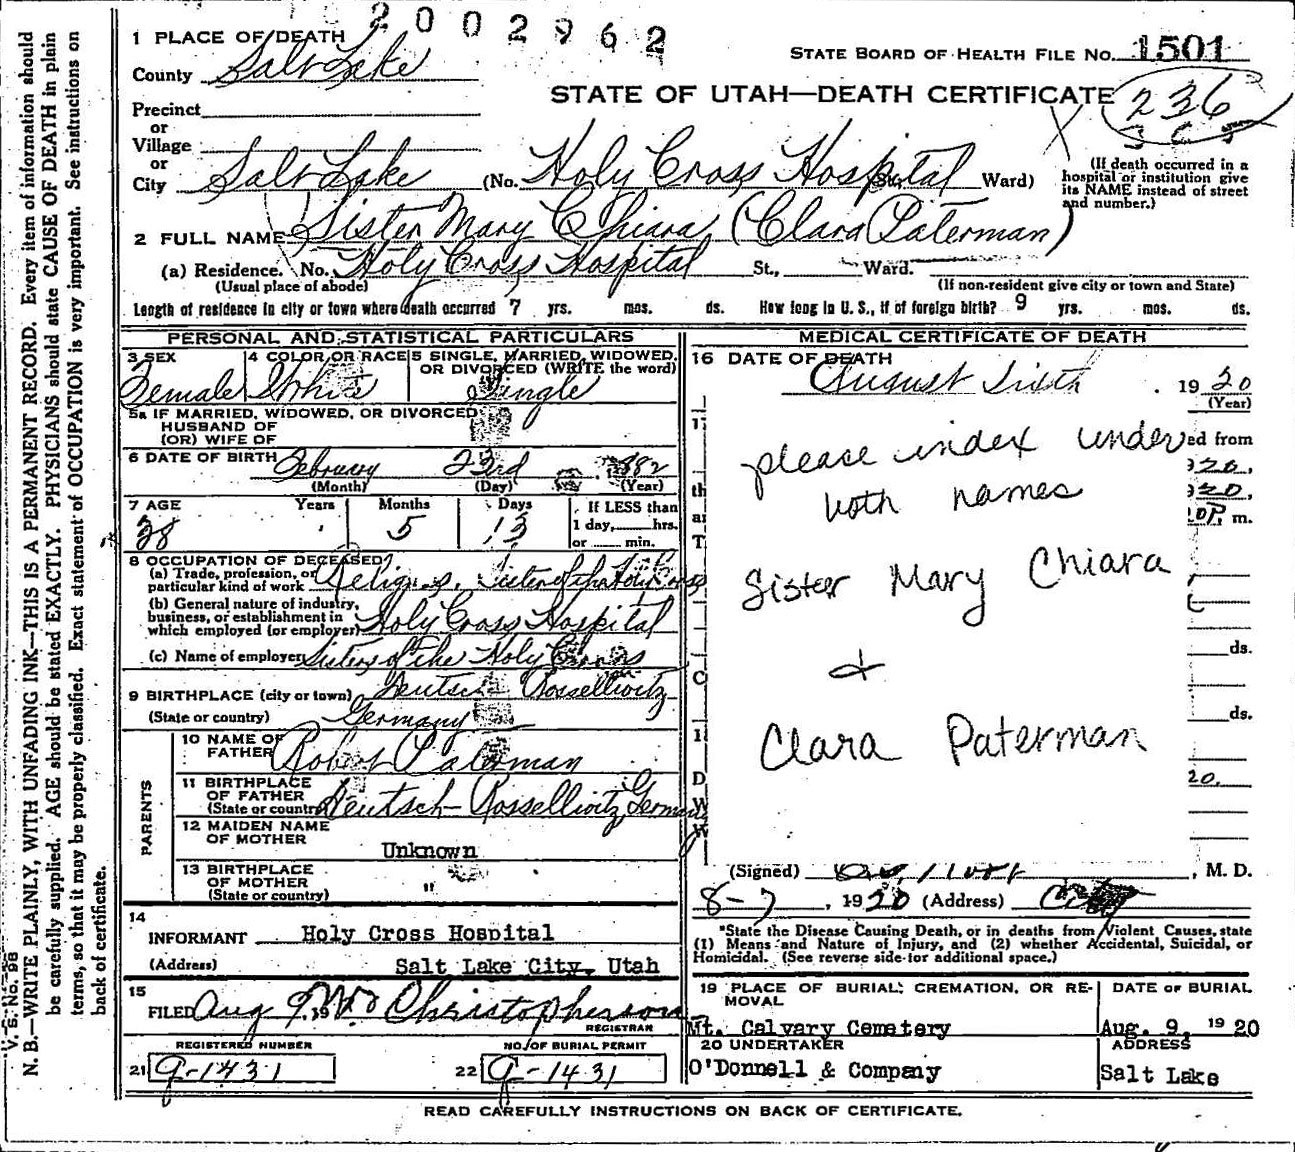 2002962
1 PLACE OF DEATH
County Salt Lake
STATE BOARD OF HEALTH FILE No. 1501
STATE OF UTAH—DEATH CERTIFICATE
236
Precinct
or
Village
or
City Salt Lake (No. Holy Cross Hospital St., Ward)
(If death occurred in a
hospital or institution give
its NAME instead of street
and number.)
2 FULL NAME Sister Mary Chiara (Clara Paterman)
(a) Residence. No. Holy Cross Hospital St., Ward.
(Usual place of abode)
(If non-resident give city or town and State)
Length of residence in city or town where death occurred 7 yrs. mos. ds. How long in U. S., if of foreign birth? 9 yrs. mos. ds.
PERSONAL AND STATISTICAL PARTICULARS
3 SEX
Female
4 COLOR OR RACE
White
5 SINGLE, MARRIED, WIDOWED,
OR DIVORCED (WRITE the word)
Single
5a IF MARRIED, WIDOWED, OR DIVORCED
HUSBAND OF
(OR) WIFE OF
6 DATE OF BIRTH February 23rd 1882
(Month) (Day) (Year)
7 AGE Years Months Days If LESS than
38 5 13 1 day, hrs.
or min.
8 OCCUPATION OF DECEASED
(a) Trade, profession, or
particular kind of work Religious, Sister of the Holy Cross
(b) General nature of industry,
business, or establishment in
which employed (or employer) Holy Cross Hospital
(c) Name of employer Sisters of the Holy Cross
9 BIRTHPLACE (city or town) Deutsch Rossellwitz
(State or country) Germany
PARENTS
10 NAME OF
FATHER Robert Paterman
11 BIRTHPLACE
OF FATHER
(State or country) Deutsch-Rossellwitz Germany
12 MAIDEN NAME
OF MOTHER
Unknown
13 BIRTHPLACE
OF MOTHER
(State or country) "
14
INFORMANT Holy Cross Hospital
(Address) Salt Lake City, Utah
15
FILED Aug 9 19 Christopherson
REGISTRAR
REGISTERED NUMBER NO. OF BURIAL PERMIT
21 G-1431 22 G-1431
MEDICAL CERTIFICATE OF DEATH
16 DATE OF DEATH
August Sixth 1920
(Year)
17
ed from
920,
920,
20P. m.
please index under
both names
Sister Mary Chiara
+
Clara Paterman
ds.
ds.
20.
(Signed) , M. D.
8-7, 1920 (Address) City
*State the Disease Causing Death, or in deaths from Violent Causes, state
(1) Means and Nature of Injury, and (2) whether Accidental, Suicidal, or
Homicidal. (See reverse side for additional space.)
19 PLACE OF BURIAL, CREMATION, OR RE-
MOVAL
Mt. Calvary Cemetery
DATE OF BURIAL
Aug. 9, 1920
20 UNDERTAKER
O'Donnell & Company
ADDRESS
Salt Lake
READ CAREFULLY INSTRUCTIONS ON BACK OF CERTIFICATE.
V. S. No. 98
N. B.—WRITE PLAINLY, WITH UNFADING INK—THIS IS A PERMANENT RECORD. Every item of information should
be carefully supplied. AGE should be stated EXACTLY. PHYSICIANS should state CAUSE OF DEATH in plain
terms, so that it may be properly classified. Exact statement of OCCUPATION is very important. See instructions on
back of certificate.